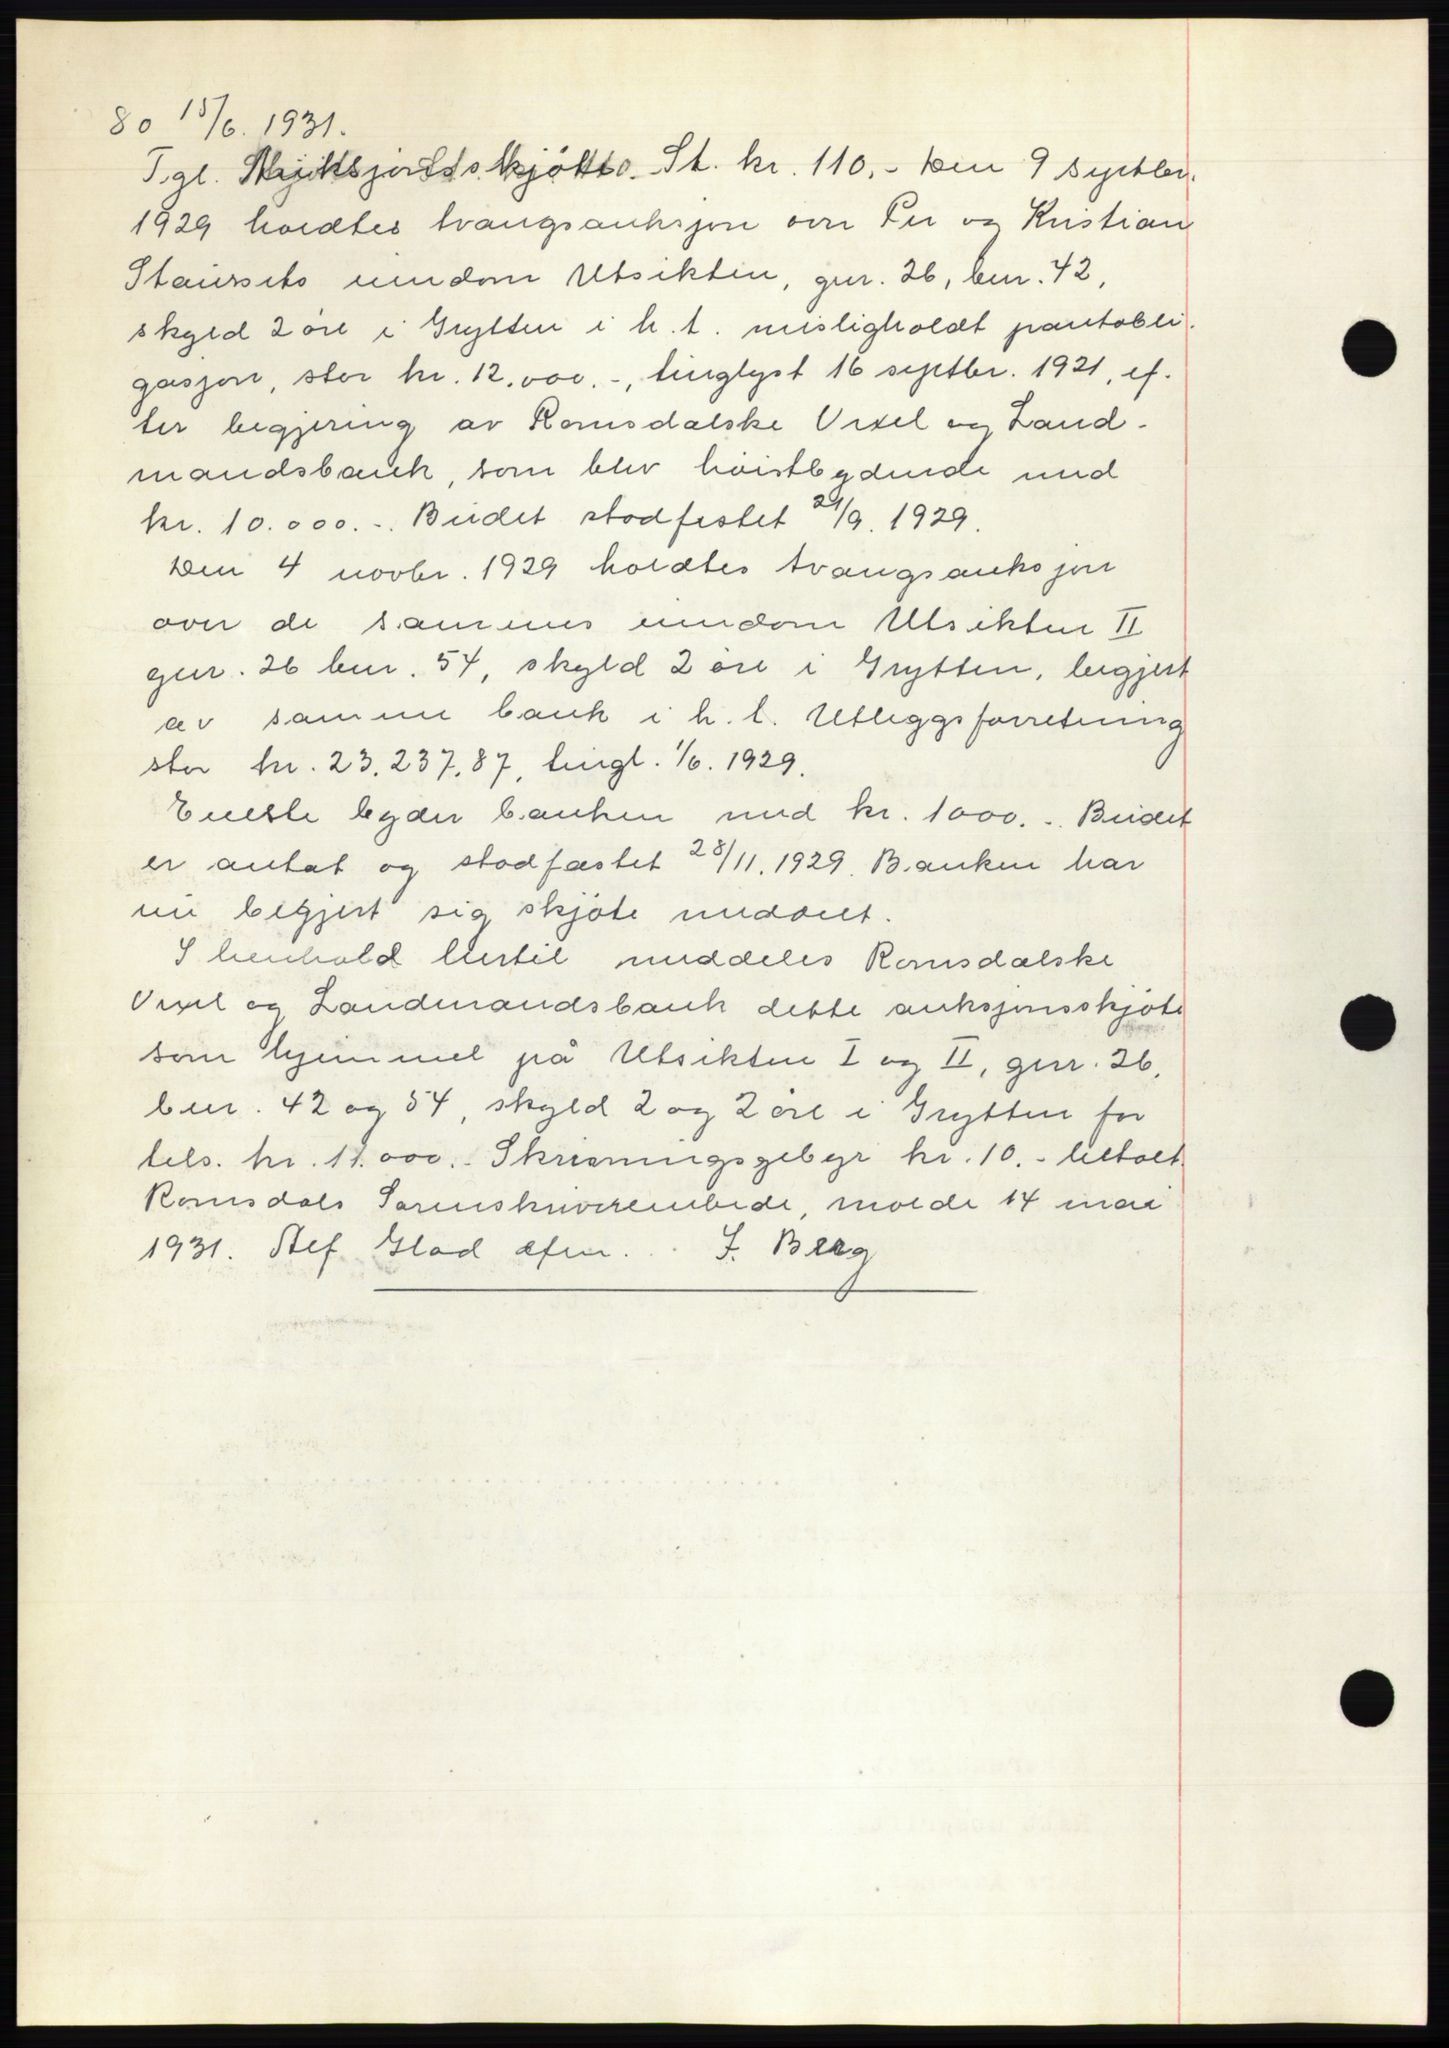 80 15/6. 1931.
Tgl. Auksjonsskjøte. St. kr. 110.- Den 9 septbr.
1929 holdtes tvangsauksjon over Per og Kristian
Staursets eiendom Utsikten, gnr. 26, bnr. 42,
skyld 2 øre i Grytten i h.t. misligholdt pantobli-
gasjon, stor kr. 12.000.-, tinglyst 16 septbr. 1921, ef-
ter begjering av Romsdalske Vexel og Land-
mandsbank, som blev høistbydende med
kr. 10.000.-. Budet stadfestet 21/9. 1929.
Den 4 novbr. 1929 holdtes tvangsauksjon
over de sammes eiendom Utsikten II
gnr. 26 bnr. 54, skyld 2 øre i Grytten, begjert
av samme bank i h.t. Utleggsforretning
stor kr. 23.237.87, tingl. 1/6. 1929.
Eneste byder banken med kr. 1000.-. Budet
er antat og stadfæstet 28/11. 1929. Banken har
nu begjert sig skjøte meddelt.
I henhold hertil meddeles Romsdalske
Vexel og Landmandsbank dette auksjonsskjøte
som hjemmel på Utsikten I og II, gnr. 26,
bnr. 42 og 54, skyld 2 og 2 øre i Grytten for
tils. kr. 11.000.- Skrivningsgebyr kr. 10.- betalt
Romsdals Sorenskriverembede, Molde 14 mai
1931. Alf Glad efm. . . J. Berg